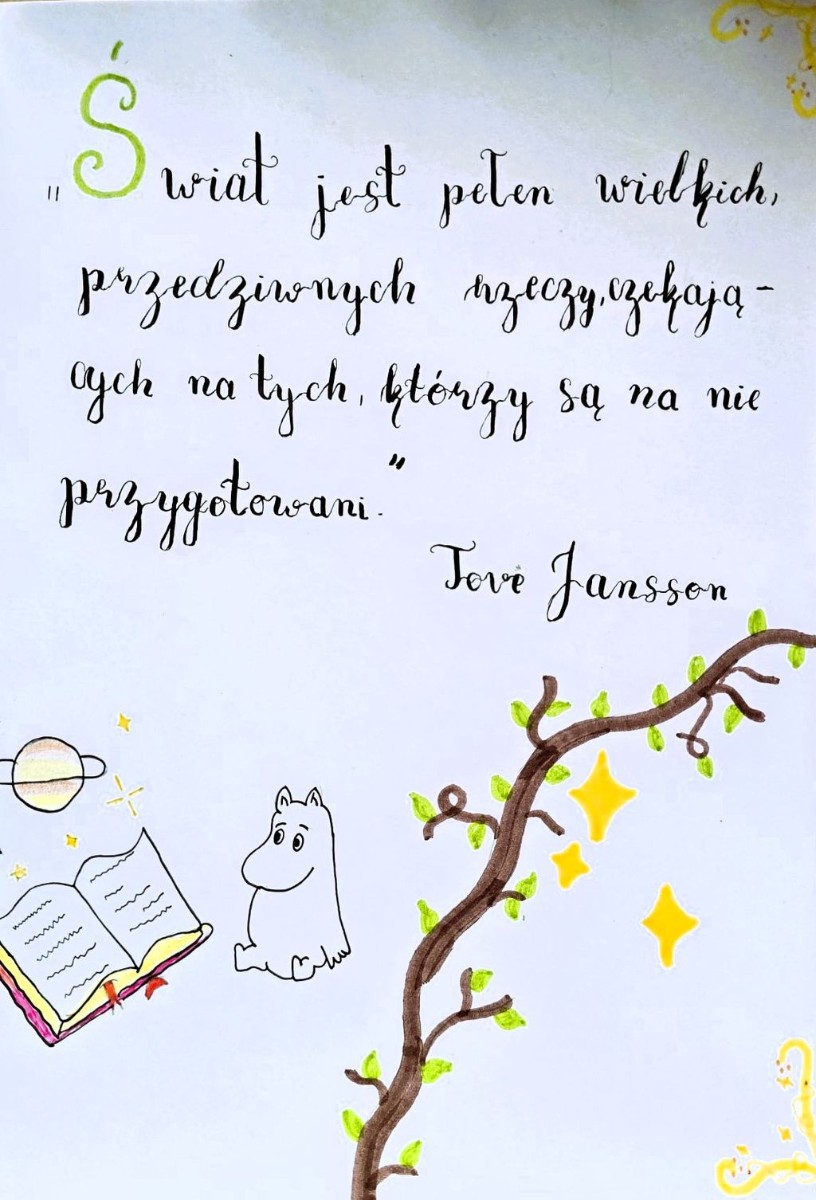 „Świat jest pełen wielkich,
przedziwnych rzeczy, czekają-
cych na tych, którzy są na nie
przygotowani."
Tove Jansson